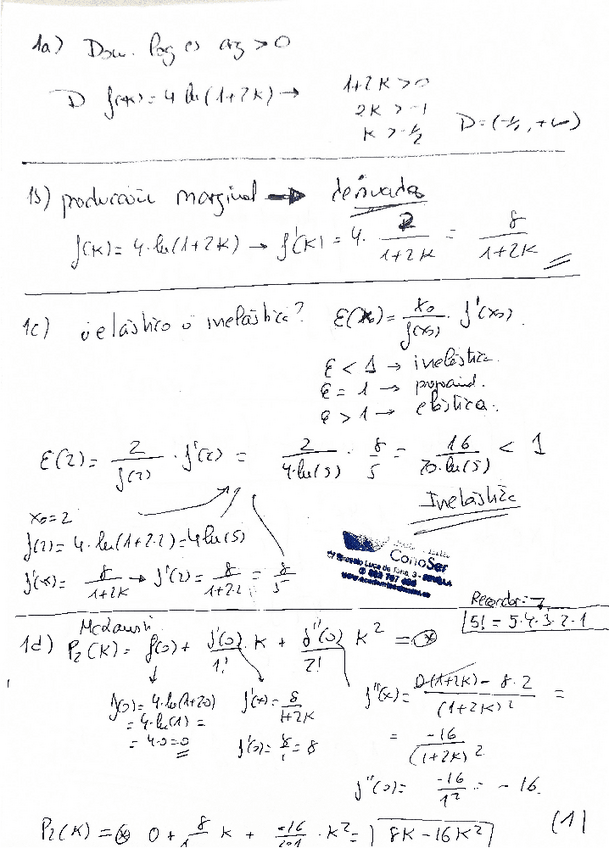 1a) Dom. log es arg > 0
D f(k) = 4 ln(1+2k) → 1+2k > 0
2k > -1
k > -1/2 D = (-1/2, +∞)
1b) producción marginal → derivada
f(k) = 4·ln(1+2k) → f'(k) = 4· 2/(1+2k) = 8/(1+2k)
1c) ¿elástico o inelástica? E(x₀) = x₀/f(x₀) · f'(x₀).
E < 1 → inelástica.
E = 1 → proporcd.
E > 1 → elástica.
E(2) = 2/f(2) · f'(2) = 2/(4·ln(5)) · 8/5 = 16/(20·ln(5)) < 1
Inelástica
x₀ = 2
f(2) = 4·ln(1+2·2) = 4 ln(5)
f'(x) = 8/(1+2k) → f'(2) = 8/(1+2·2) = 8/5
ConoSer
Recordar:
5! = 5·4·3·2·1
1d) P₂(k) = f(0) + f'(0)/1! · k + f''(0)/2! k² = ⊛
f(0) = 4·ln(1+20) f'(x) = 8/(1+2k) f''(x) = (0·(1+2k) - 8·2)/(1+2k)² =
= 4·ln(1) =
= 4·0 = 0 f'(0) = 8/1 = 8 = -16/(1+2k)²
f''(0) = -16/1² = -16.
P₂(k) = ⊛ 0 + 8/1 k + -16/2·1 · k² = 8k - 16k² (1)